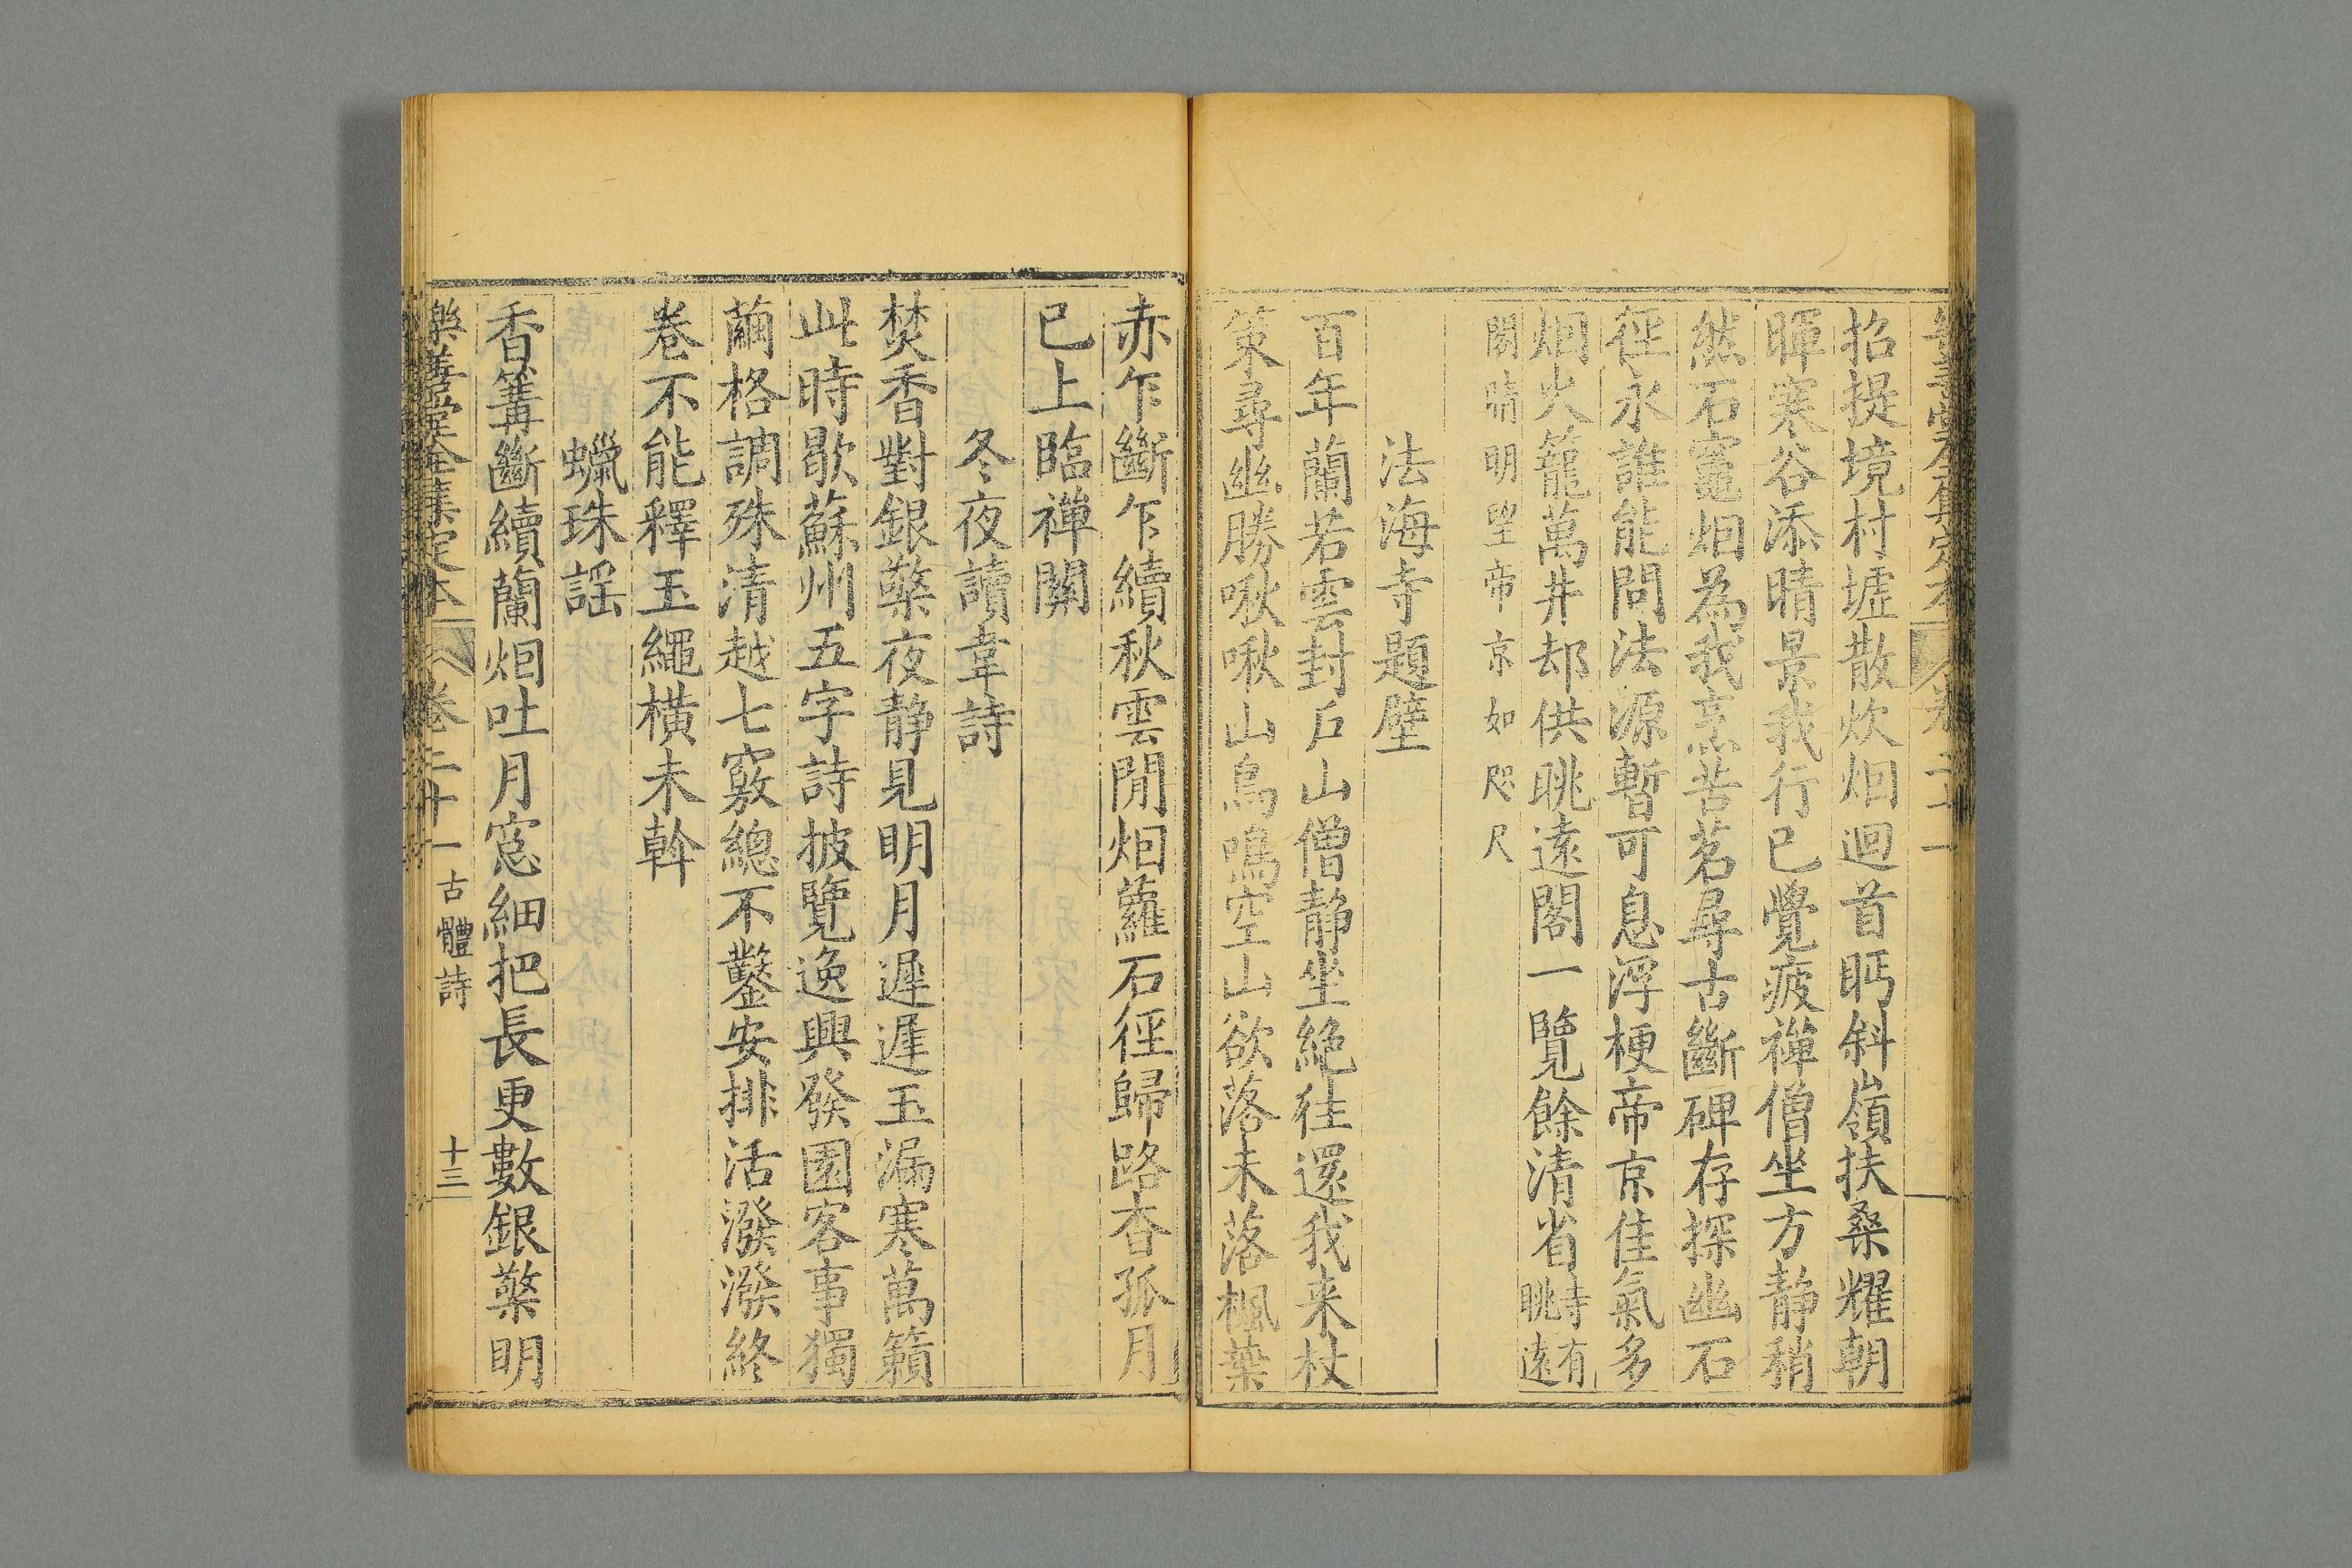 樂善堂全集定本 卷二十一
招提境村墟散炊烟迴首眄斜嶺扶桑耀朝
暉寒谷添晴景我行已覺疲禅僧坐方静稍
然石竈烟為我烹苦茗尋古斷碑存探幽石
徑永誰能問法源暫可息浮梗帝京佳氣多
烟火籠萬井却供眺遠閣一覽餘清省寺有眺遠
閣晴明望帝京如咫尺
法海寺題壁
百年蘭若雲封戶山僧静坐絶往還我来杖
策尋幽勝啾啾山鳥鳴空山欲落未落楓葉
赤乍斷乍續秋雲閒烟蘿石徑歸路杳孤月
已上臨禅關
冬夜讀韋詩
焚香對銀檠夜静見明月遲遲玉漏寒萬籟
此時歇蘇州五字詩披覽逸興發園客事獨
繭格調殊清越七竅總不鑿安排活潑潑終
卷不能釋玉繩横未斡
蠟珠謡
香篝斷續蘭烟吐月窓細把長更數銀檠明
樂善堂全集定本 卷二十一 古體詩 十三